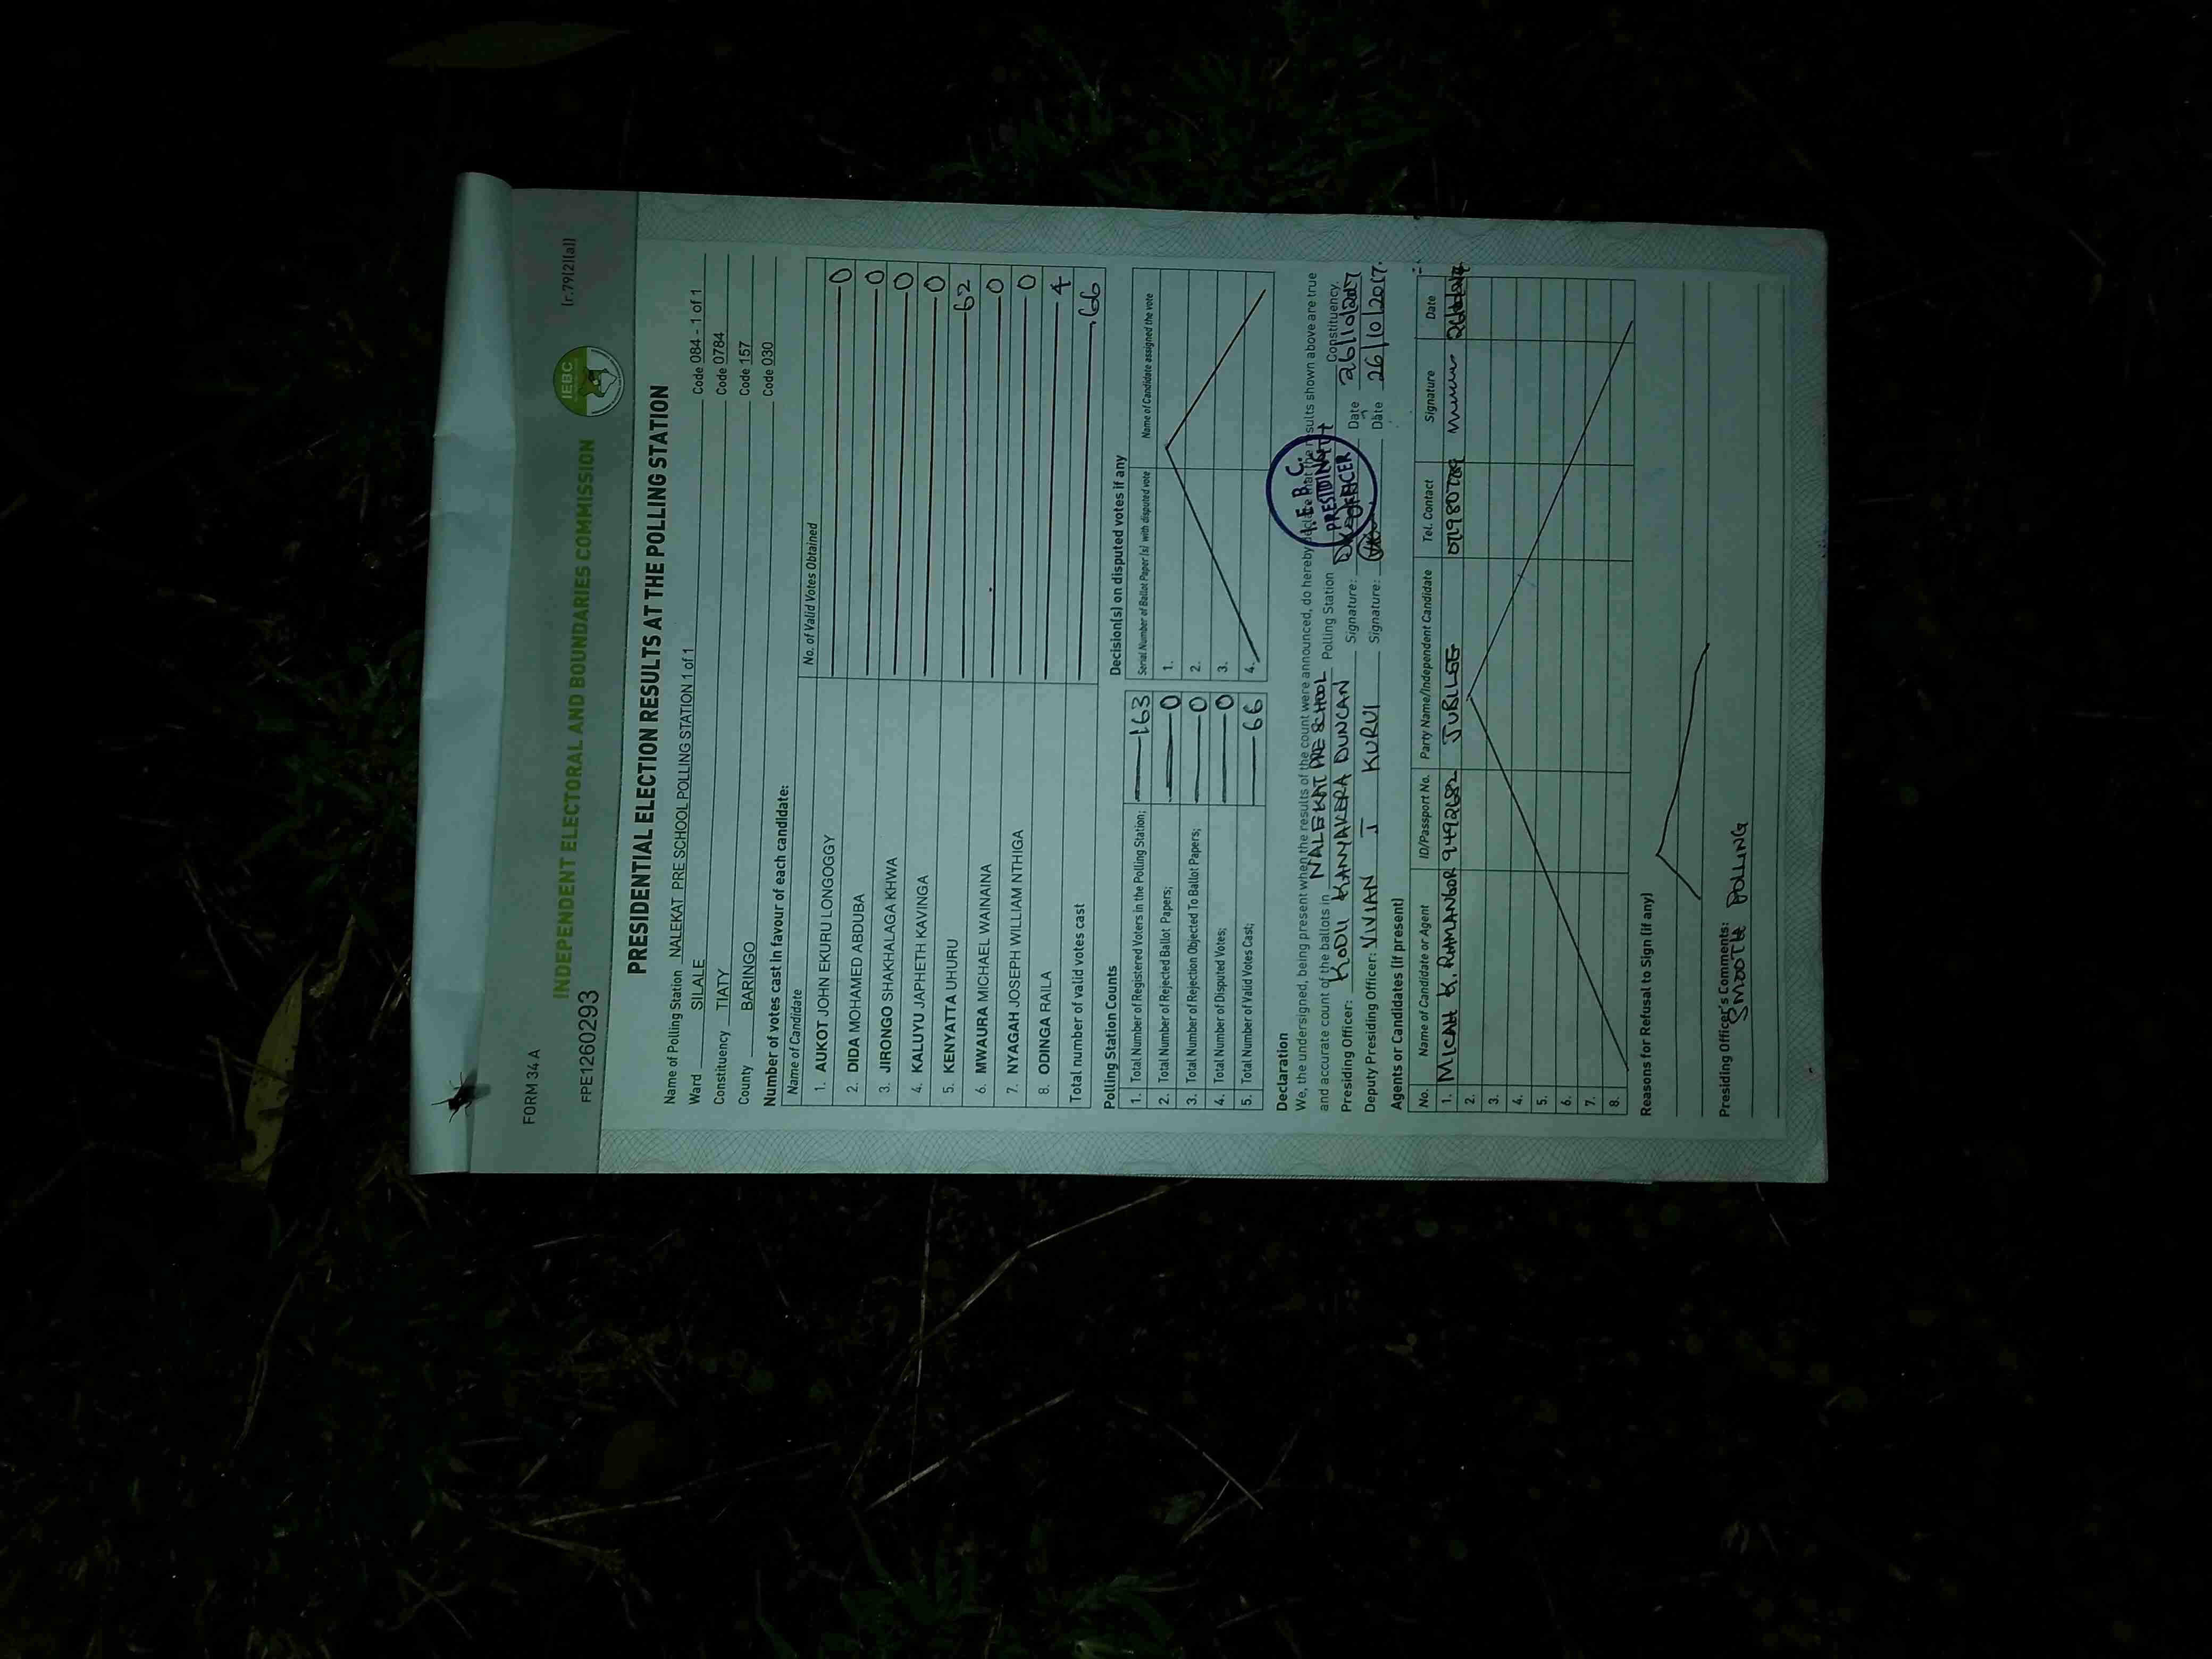 FORM 34 A
[r.79[2][a]]
INDEPENDENT ELECTORAL AND BOUNDARIES COMMISSION
IEBC
FPE1260293
PRESIDENTIAL ELECTION RESULTS AT THE POLLING STATION
Name of Polling Station NALEKAT PRE SCHOOL POLLING STATION 1 of 1
Ward SILALE Code 084 - 1 of 1
Constituency TIATY Code 0784
County BARINGO Code 157
Code 030
Number of votes cast in favour of each candidate:
Name of Candidate No. of Valid Votes Obtained
1. AUKOT JOHN EKURU LONGOGGY 0
2. DIDA MOHAMED ABDUBA 0
3. JIRONGO SHAKHALAGA KHWA 0
4. KALUYU JAPHETH KAVINGA 0
5. KENYATTA UHURU 62
6. MWAURA MICHAEL WAINAINA 0
7. NYAGAH JOSEPH WILLIAM NTHIGA 0
8. ODINGA RAILA 4
Total number of valid votes cast 66
Polling Station Counts
1. Total Number of Registered Voters in the Polling Station; 163
2. Total Number of Rejected Ballot Papers; 0
3. Total Number of Rejection Objected To Ballot Papers; 0
4. Total Number of Disputed Votes; 0
5. Total Number of Valid Votes Cast; 66
Decision(s) on disputed votes if any
Serial Number of Ballot Paper (s) with disputed vote Name of Candidate assigned the vote
1.
2.
3.
4.
Declaration
We, the undersigned, being present when the results of the count were announced, do hereby declare that the results shown above are true
and accurate count of the ballots in NALEKAT PRE SCHOOL Polling Station Constituency.
Presiding Officer: KODII KANYAKERA DUNCAN Signature: Date 26/10/2017
Deputy Presiding Officer: VIVIAN J KURUI Signature: Date 26/10/2017.
I.E.B.C.
PRESIDING
OFFICER
Agents or Candidates (if present)
No. Name of Candidate or Agent ID/Passport No. Party Name/Independent Candidate Tel. Contact Signature Date
1. MICAH K. 9492682 JUBILEE
2.
3.
4.
5.
6.
7.
8.
Reasons for Refusal to Sign (if any)
Presiding Officer's Comments:
SMOOTH POLLING